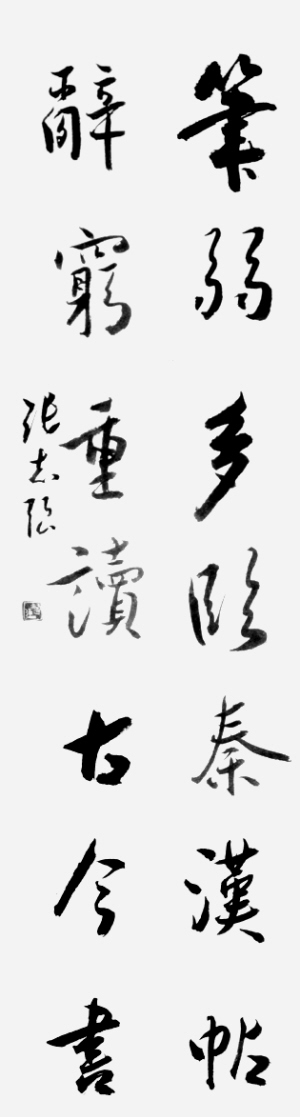 筆弱多臨秦漢帖
辭窮重讀古今書
張志強